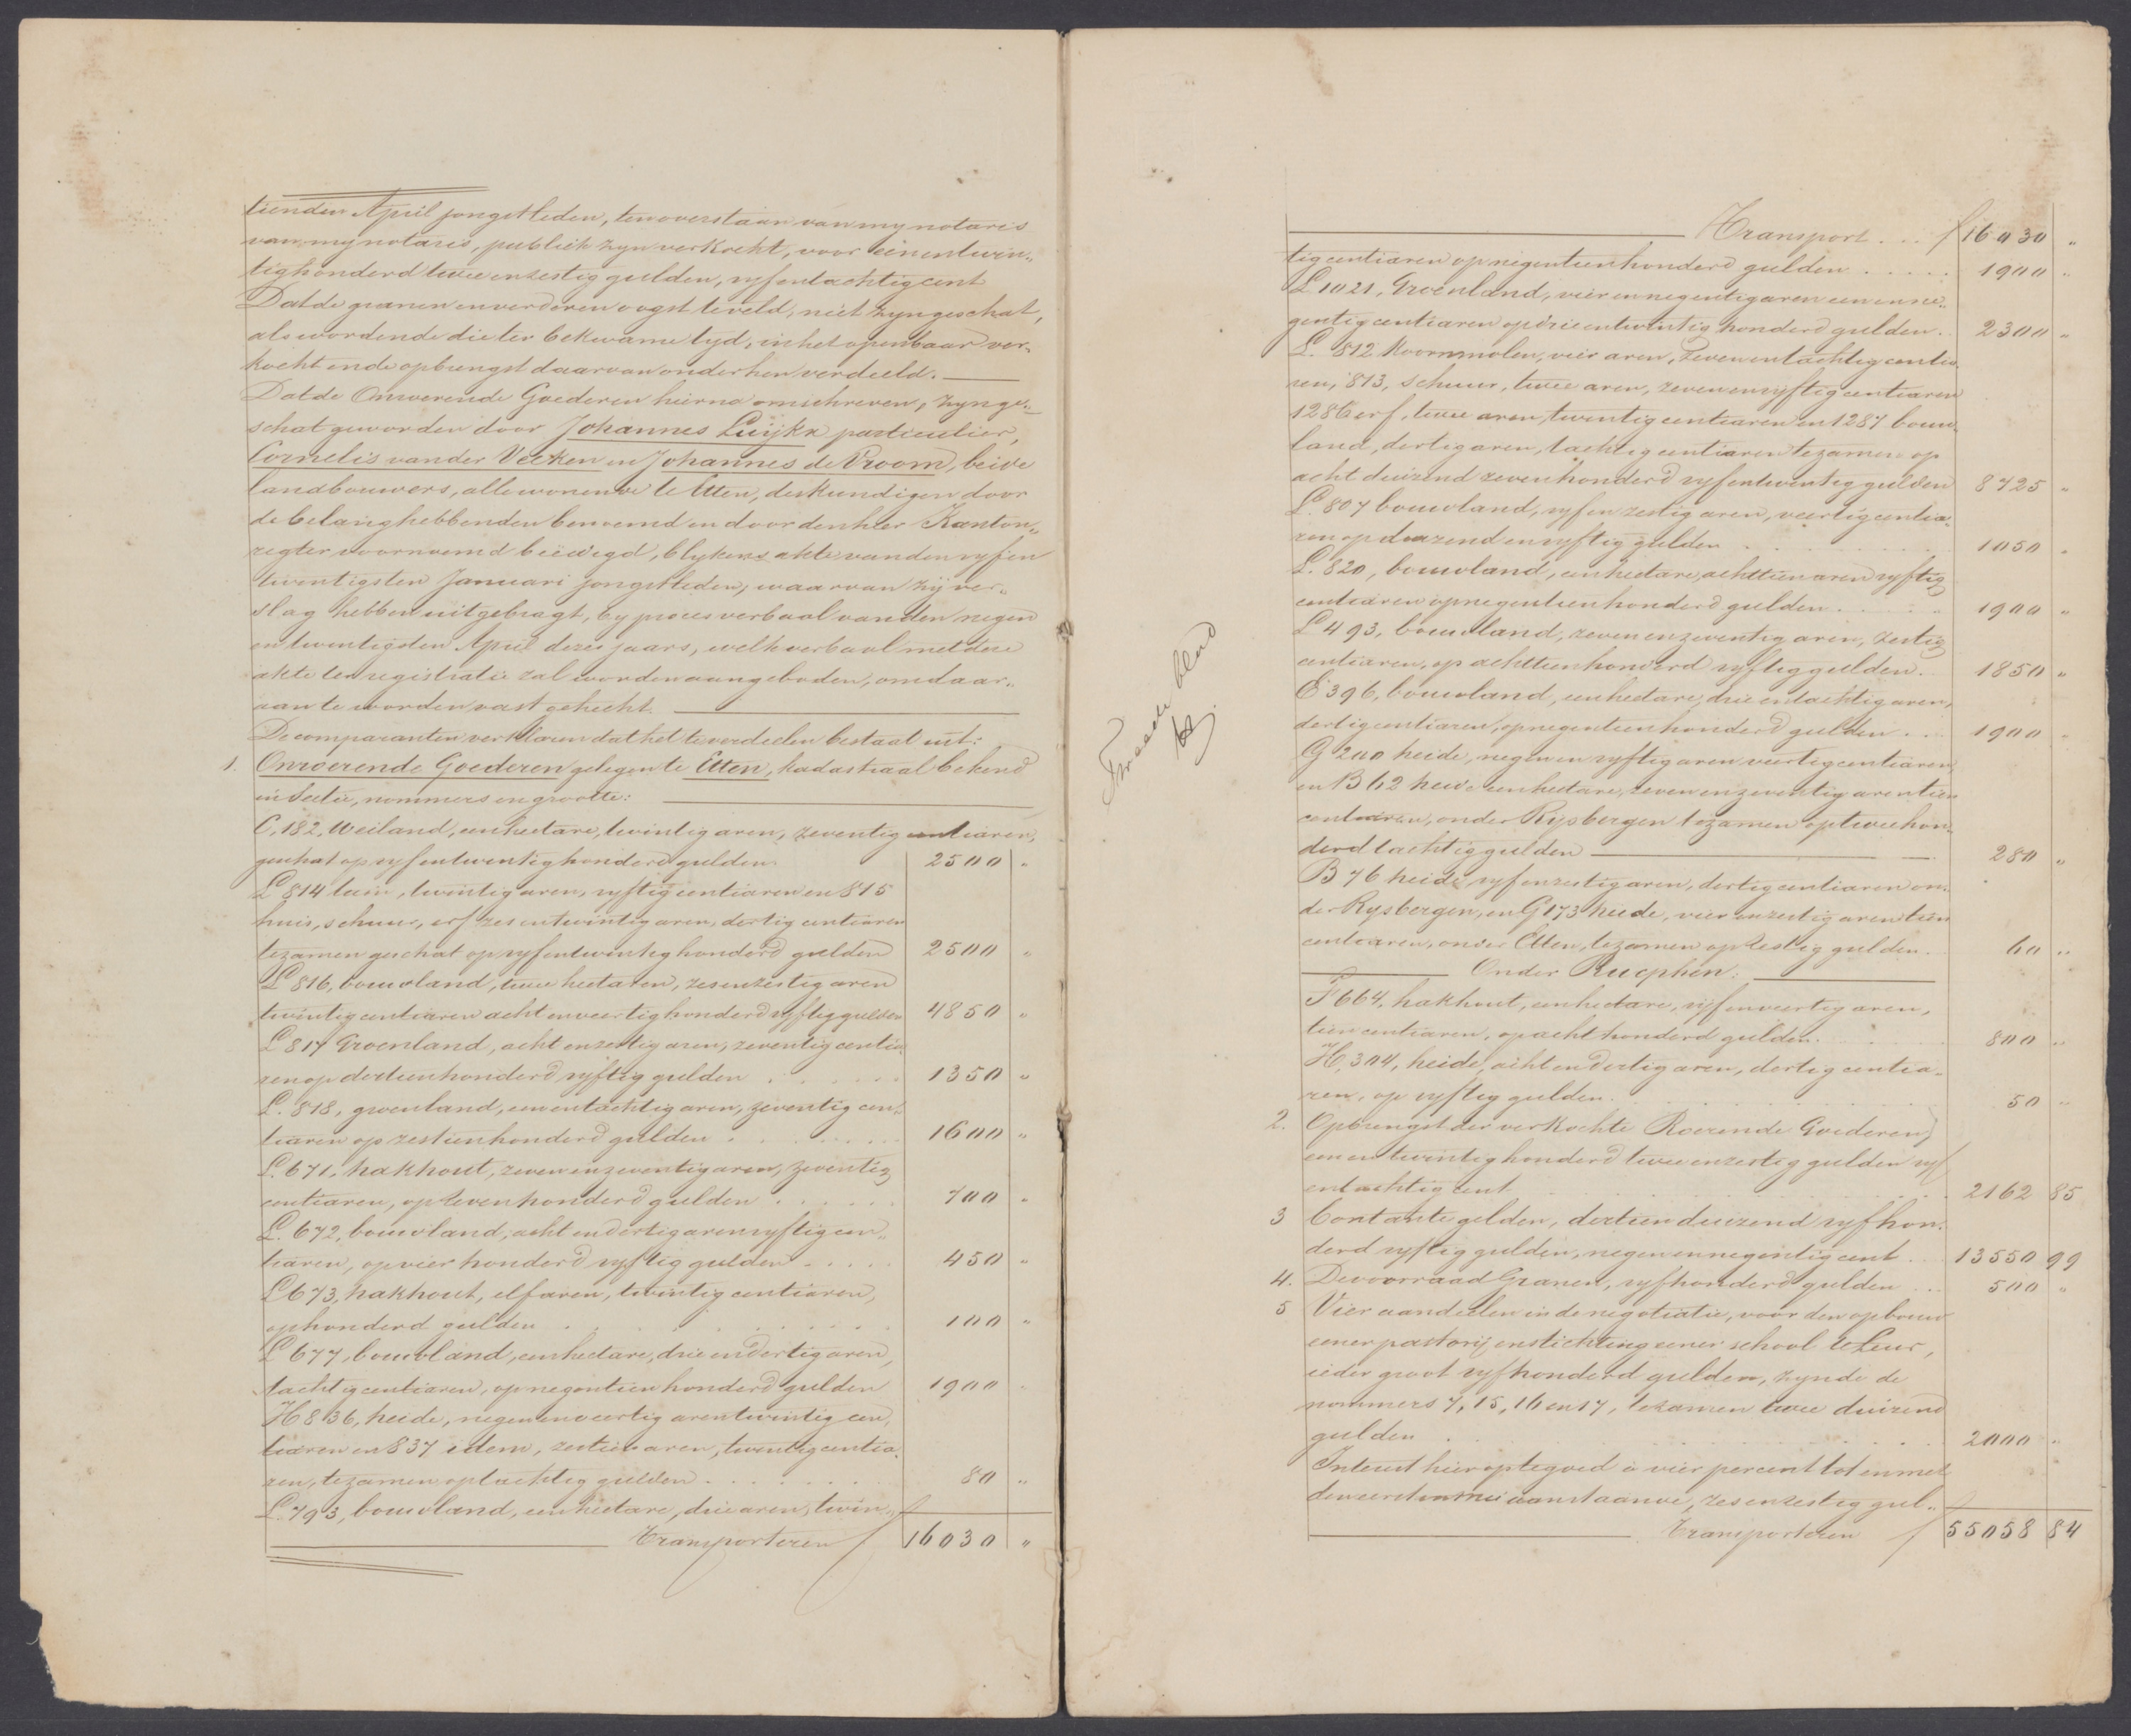 tienden April jongstleden, ten overstaan van my notaris
van my notaris, publiek zyn verkocht, voor eenentwin„
tighonderd twee en zestig gulden, vyfentachtig cent
Dat de granen en verderen oogst te veld, niet zyn geschat,
als wordende die ter bekwame tyd, in het openbaar ver„
kocht en de opbrengst daarvan onder hen verdeeld. ———
Dat de Onroerende Goederen hierna omschreven, zyn ge„
schat geworden door Johannes Luijkx particulier,
Cornelis van der Veeken en Johannes de Vroom, beide
landbouwers, alle wonende te Etten, deskundigen door
de belanghebbenden benoemd en door den heer Kanton„
regter voornoemd beëedigd, blykens akte van den vyfen
twentigsten Januari jongstleden, waarvan zij ver„
slag hebben uitgebragt, by proces verbaal van den negen
en twentigsten April dezes jaars, welk verbaal met deze
akte ter registratie zal worden aangeboden, om daar„
aan te worden vast gehecht. ———
De comparanten verklaren dat het te verdeelen bestaat uit:
1. Onroerende Goederen gelegen te Etten, kadastraal bekend
in Sectie, nommers en grootte: ———
C, 182, Weiland, een hectare, twintig aren, zeventig centiaren,
geschat op vyfentwentighonderd gulden. 2500 „
L 814 tuin, twintig aren, vyftig centiaren en 815
huis, schuur, erf zes entwintig aren, dertig centiaren
tezamen geschat op vyfentwintighonderd gulden 2500 „
L 816, bouwland, twee hectaren, zesenzestig aren
twintig centiaren achtenveertighonderd vyftig gulden 4850 „
L 817 Groenland, acht enzestig aren, zeventig centia„
ren op dertienhonderd vyftig gulden . . . . 1350 „
L. 818, groenland, een entachtig aren, zeventig cen„
tiaren op zestienhonderd gulden . . . . 1600 „
L. 671, hakhout, zeven enzeventig aren, zeventig
centiaren, op zevenhonderd gulden . . . . 700 „
L. 672, bouwland, acht endertig aren vyftig cen„
tiaren, op vier honderd vyftig gulden . . . . 450 „
L 673, hakhout, elf aren, twintig centiaren,
op honderd gulden . . . . 100 „
L 677, bouwland, een hectare, drie endertig aren,
tachtig centiaren, op negentien honderd gulden 1900 „
H 836, heide, negen enveertig aren twintig cen„
tiaren en 837 idem, zestien aren, twintig centia„
ren, tezamen op tachtig gulden . . . . 80 „
L. 793, bouwland, een hectare, drie aren, twin„
Transporteren f 16030 „
Tweede blad
Transport . . . f 16030 „
tig centiaren op negentienhonderd gulden . . . . 1900 „
L 1021, Groenland, vier en negentig aren een enne„
gentig centiaren op drieentwintig honderd gulden. 2300 „
L. 812 Koornmolen, vier aren, zevenentachtig centia„
ren, 813, schuur, twee aren, zeven envyftig centiaren
1286 erf, twee aren, twintig centiaren en 1287 bouw„
land, dertig aren, tachtig centiaren tezamen op
acht duizend zevenhonderd vyfentwentig gulden 8725 „
L. 807 bouwland, vyf en zestig aren, veertig centia„
ren op duizend envyftig gulden . . . . 1050 „
L. 820, bouwland, een hectare, achttien aren vyftig
centiaren op negentienhonderd gulden . . . . 1900 „
L 493, bouwland, zeven enzeventig aren, zestig
centiaren, op achttienhonderd vyftig gulden. 1850 „
E 396, bouwland, een hectare, drie entachtig aren,
dertig centiaren, op negentienhonderd gulden . . . 1900 „
G 200 heide, negen en vyftig aren veertig centiaren,
en B 62 heide een hectare, zeven enzeventig aren tien
centiaren, onder Rijsbergen tezamen op twee hon„
derd tachtig gulden ——— 280 „
B 76 heide, vyfenzestig aren, dertig centiaren on„
der Rysbergen, en G 173 heide, vier enzestig aren tien
centiaren, onder Etten, tezamen op zestig gulden. 60 „
——— Onder Rucphen: ———
F 664, hakhout, een hectare, vyf enveertig aren,
tien centiaren, op acht honderd gulden. . . . 800 „
H, 304, heide, acht en dertig aren, dertig centia„
ren, op vyftig gulden. . . . 50 „
2. Opbrengst der verkochte Roerende Goederen,
een en twintig honderd twee enzestig gulden vyf
entachtig cent . . . . 2162 85
3 Contante gelden, dertien duizend vyfhon„
derd vyftig gulden, negen ennegentig cent . . . 13550 99
4. De voorraad Granen, vyfhonderd gulden . . . 500 „
5 Vier aandeelen in de negotiatie, voor den opbouw
eener pastorij en stichting eener school te Leur,
ieder groot vyfhonderd gulden, zynde de
nommers 7, 15, 16 en 17, tezamen twee duizend
gulden . . . . 2000 „
Interest hierop tegoed à vier percent tot en met
den eersten mei aanstaande, zes enzestig gul„
Transporteren f 55058 84